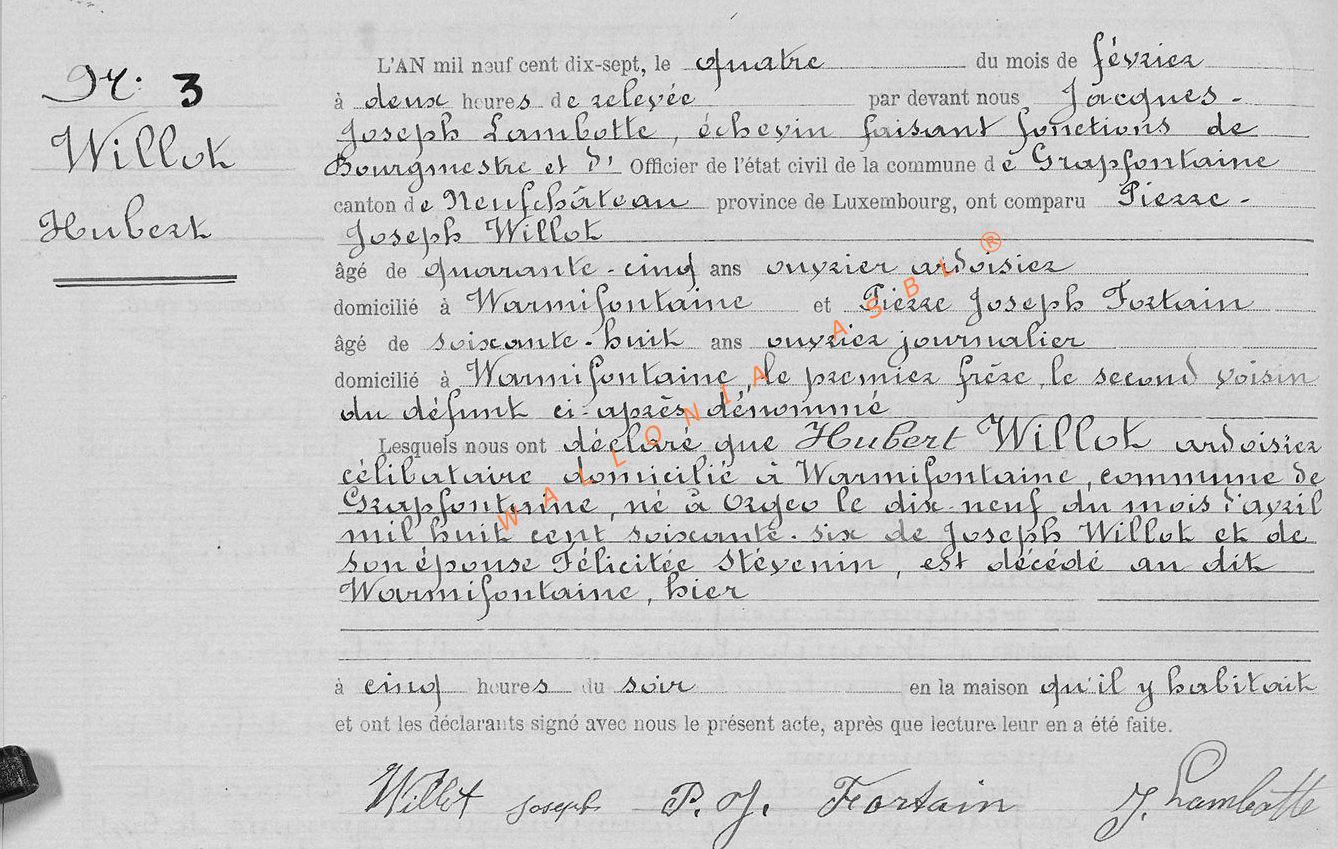 Nr. 3
Willot
Hubert
L'AN mil neuf cent dix-sept, le quatre du mois de février
à deux heures de relevée par devant nous Jacques-
Joseph Lambotte, échevin faisant fonctions de
Bourgmestre et d' Officier de l'état civil de la commune de Grapfontaine
canton de Neufchâteau province de Luxembourg, ont comparu Pierre-
Joseph Willot
âgé de quarante-cinq ans ouvrier ardoisier
domicilié à Warmifontaine et Pierre Joseph Fortain
âgé de soixante-huit ans ouvrier journalier
domicilié à Warmifontaine, le premier frère, le second voisin
du défunt ci-après dénommé
Lesquels nous ont déclaré que Hubert Willot ardoisier
célibataire domicilié à Warmifontaine, commune de
Grapfontaine, né à Orgeo le dix-neuf du mois d'avril
mil huit cent soixante-six de Joseph Willot et de
son épouse Félicitée Stévenin, est décédé au dit
Warmifontaine, hier
à cinq heures du soir en la maison qu'il y habitait
et ont les déclarants signé avec nous le présent acte, après que lecture leur en a été faite.
Willot Joseph P. J. Fortain J. Lambotte
WALLONIA ASBL ®